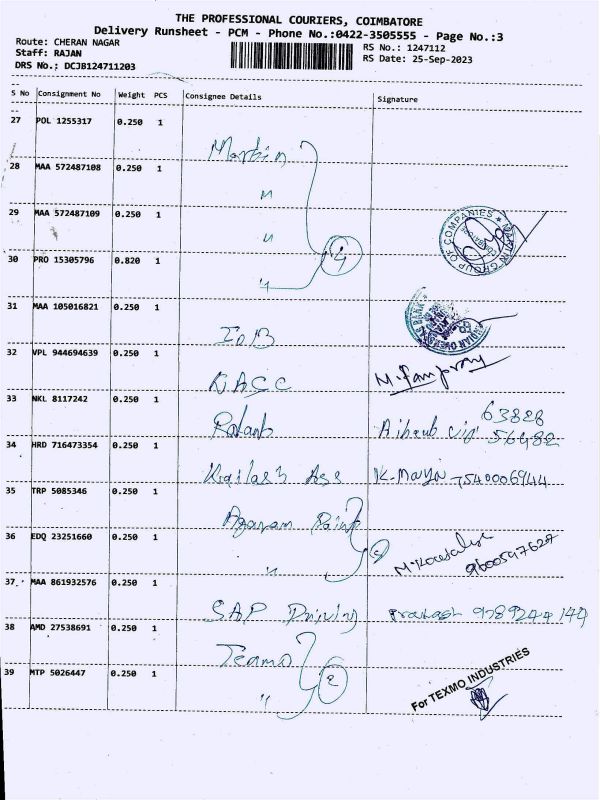 THE PROFESSIONAL COURIERS, COIMBATORE
Delivery Runsheet - PCM - Phone No.:0422-3505555 - Page No.:3
Route: CHERAN NAGAR
RS No.: 1247112
Staff: RAJAN
RS Date: 25-Sep-2023
DRS No.: DCJB124711203
S No Consignment No Weight PCS Consignee Details Signature
27 POL 1255317 0.250 1
Martin
28 MAA 572487108 0.250 1
"
29 MAA 572487109 0.250 1
"
MARTIN GROUP OF COMPANIES
30 PRO 15305796 0.820 1
" 4
31 MAA 105016821 0.250 1
IOB
32 VPL 944694639 0.250 1
KASC
33 NKL 8117242 0.250 1
63828
56482
34 HRD 716473354 0.250 1
Kailash Ass K. 7540006944
35 TRP 5085346 0.250 1
Agaram Paint
36 EDQ 23251660 0.250 1
" 9600597627
37 MAA 861932576 0.250 1
SAP Driving Prakash
38 AMD 27538691 0.250 1
Texmo
39 MTP 5026447 0.250 1
" 2
For TEXMO INDUSTRIES